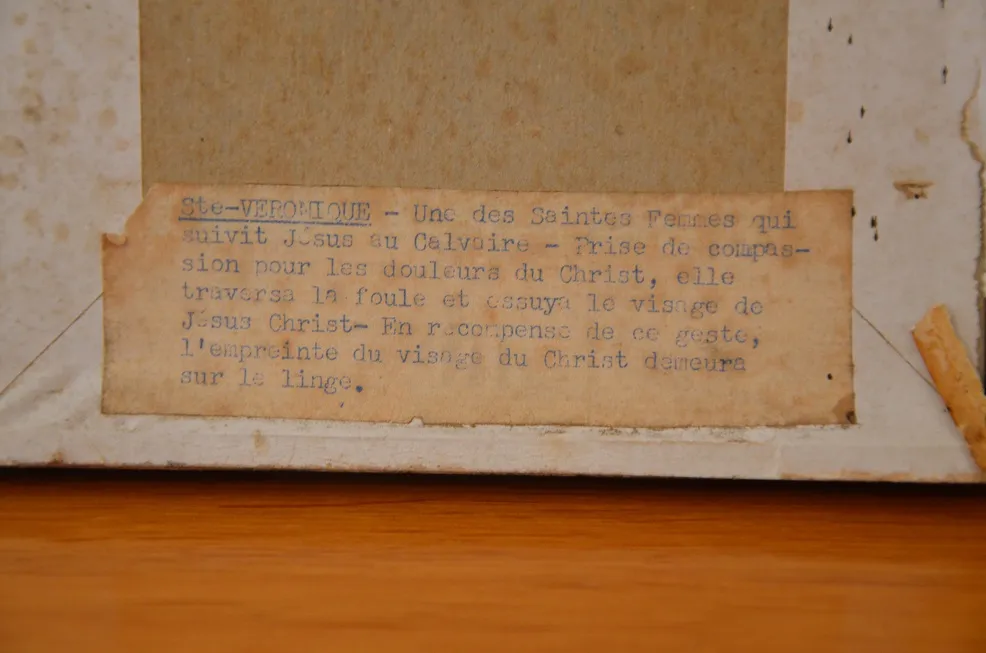 Ste-VERONIQUE - Une des Saintes Femmes qui
suivit Jésus au Calvaire - Prise de compas-
sion pour les douleurs du Christ, elle
traversa la foule et essuya le visage de
Jésus Christ- En récompense de ce geste,
l'empreinte du visage du Christ demeura
sur le linge.